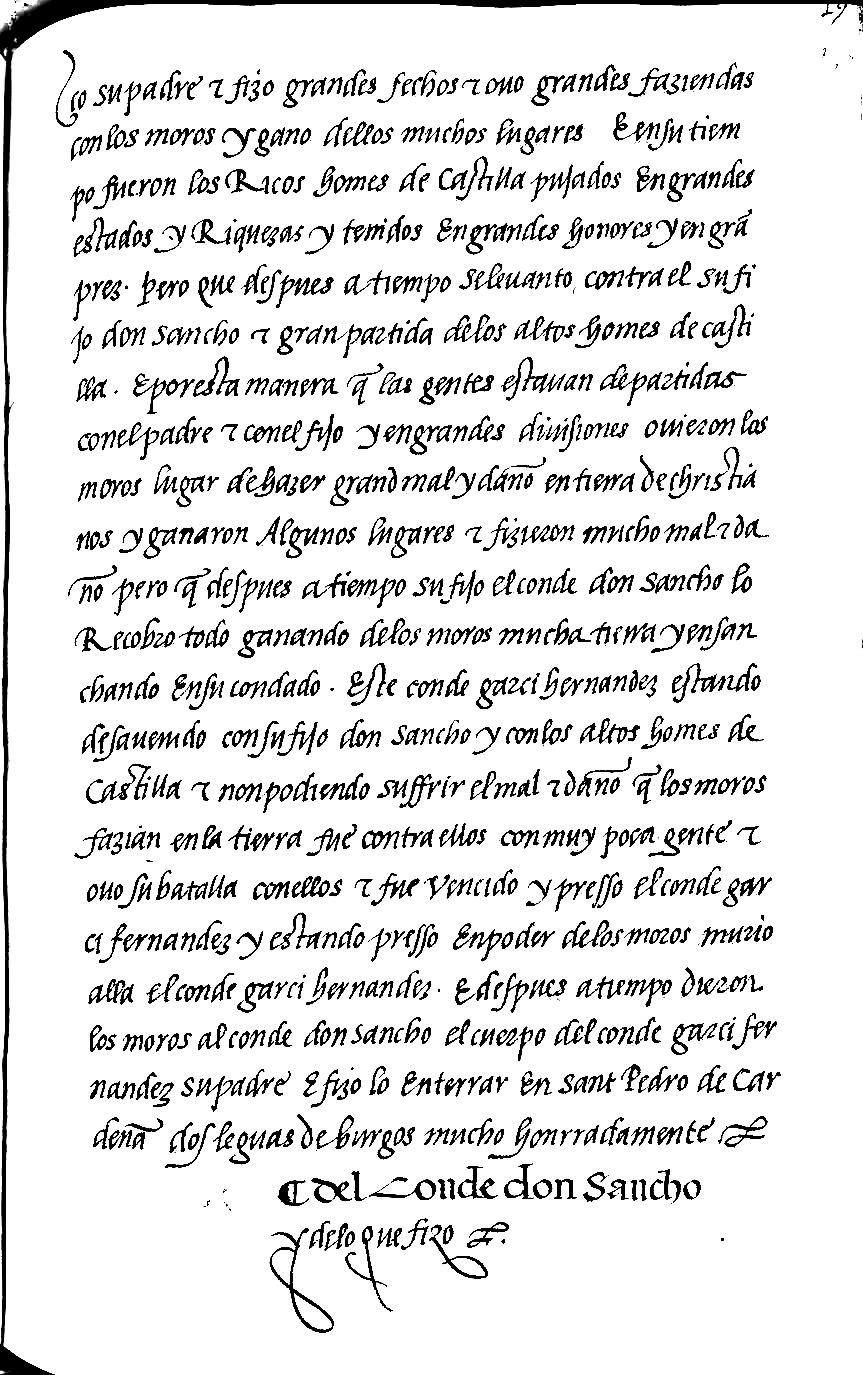 19
co su padre τ fizo grandes fechos τ ouo grandes faziendas
con los moros y gano dellos muchos lugares E en su tiem
po fueron los Ricos homes de Castilla pujados En grandes
estados y Riquezas y tenidos En grandes honores y en grã
prez. pero que despues a tiempo se leuanto contra el su fi
jo don sancho τ gran partida de los altos homes de casti
lla. E por esta manera q̃ las gentes estauan departidas
con el padre τ con el fijo y en grandes diuisiones ouieron los
moros lugar de hazer grand mal y daño en tierra de christia
nos y ganaron Algunos lugares τ fizieron mucho mal τ da
ño pero q̃ despues a tiempo su fijo el conde don sancho lo
Recobro todo ganando de los moros mucha tierra y ensan
chando En su condado. Este conde garci hernandez estando
desauenido con su fijo don sancho y con los altos homes de
Castilla τ non podiendo suffrir el mal τ daño q̃ los moros
fazian en la tierra fue contra ellos con muy poca gente τ
ouo su batalla con ellos τ fue Vencido y presso el conde gar
ci fernandez y estando presso En poder de los moros murio
alla el conde garci hernandez. E despues a tiempo dieron
los moros al conde don sancho el cuerpo del conde garci fer
nandez su padre E fizo lo Enterrar En sant Pedro de Car
deña dos leguas de burgos mucho honrradamente
¶ del Conde don Sancho
y de lo que fizo